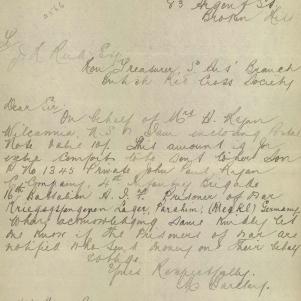 83 Argent St
Broken Hill
J. A. Esq
Hon Treasurer, So Aus' Branch
British Red Cross Society
Dear Sir
On behalf of Mrs H. Ryan
Wilcannia, N.S.W I am enclosing Postal
Note Value 10/. This amount is for
extra Comforts to be sent to her Son
No 1345 Private John Paul Ryan
Company, 4th Brigade
16th Battalion A. I. F. Prisoner of War
Kriegsgefangenen Lager, Parchim, (Meckl) Germany
acknowledging Same Kindly let
me Know if the Prisoners of War are
notified who sent money on their behalf
Yours Respectfully